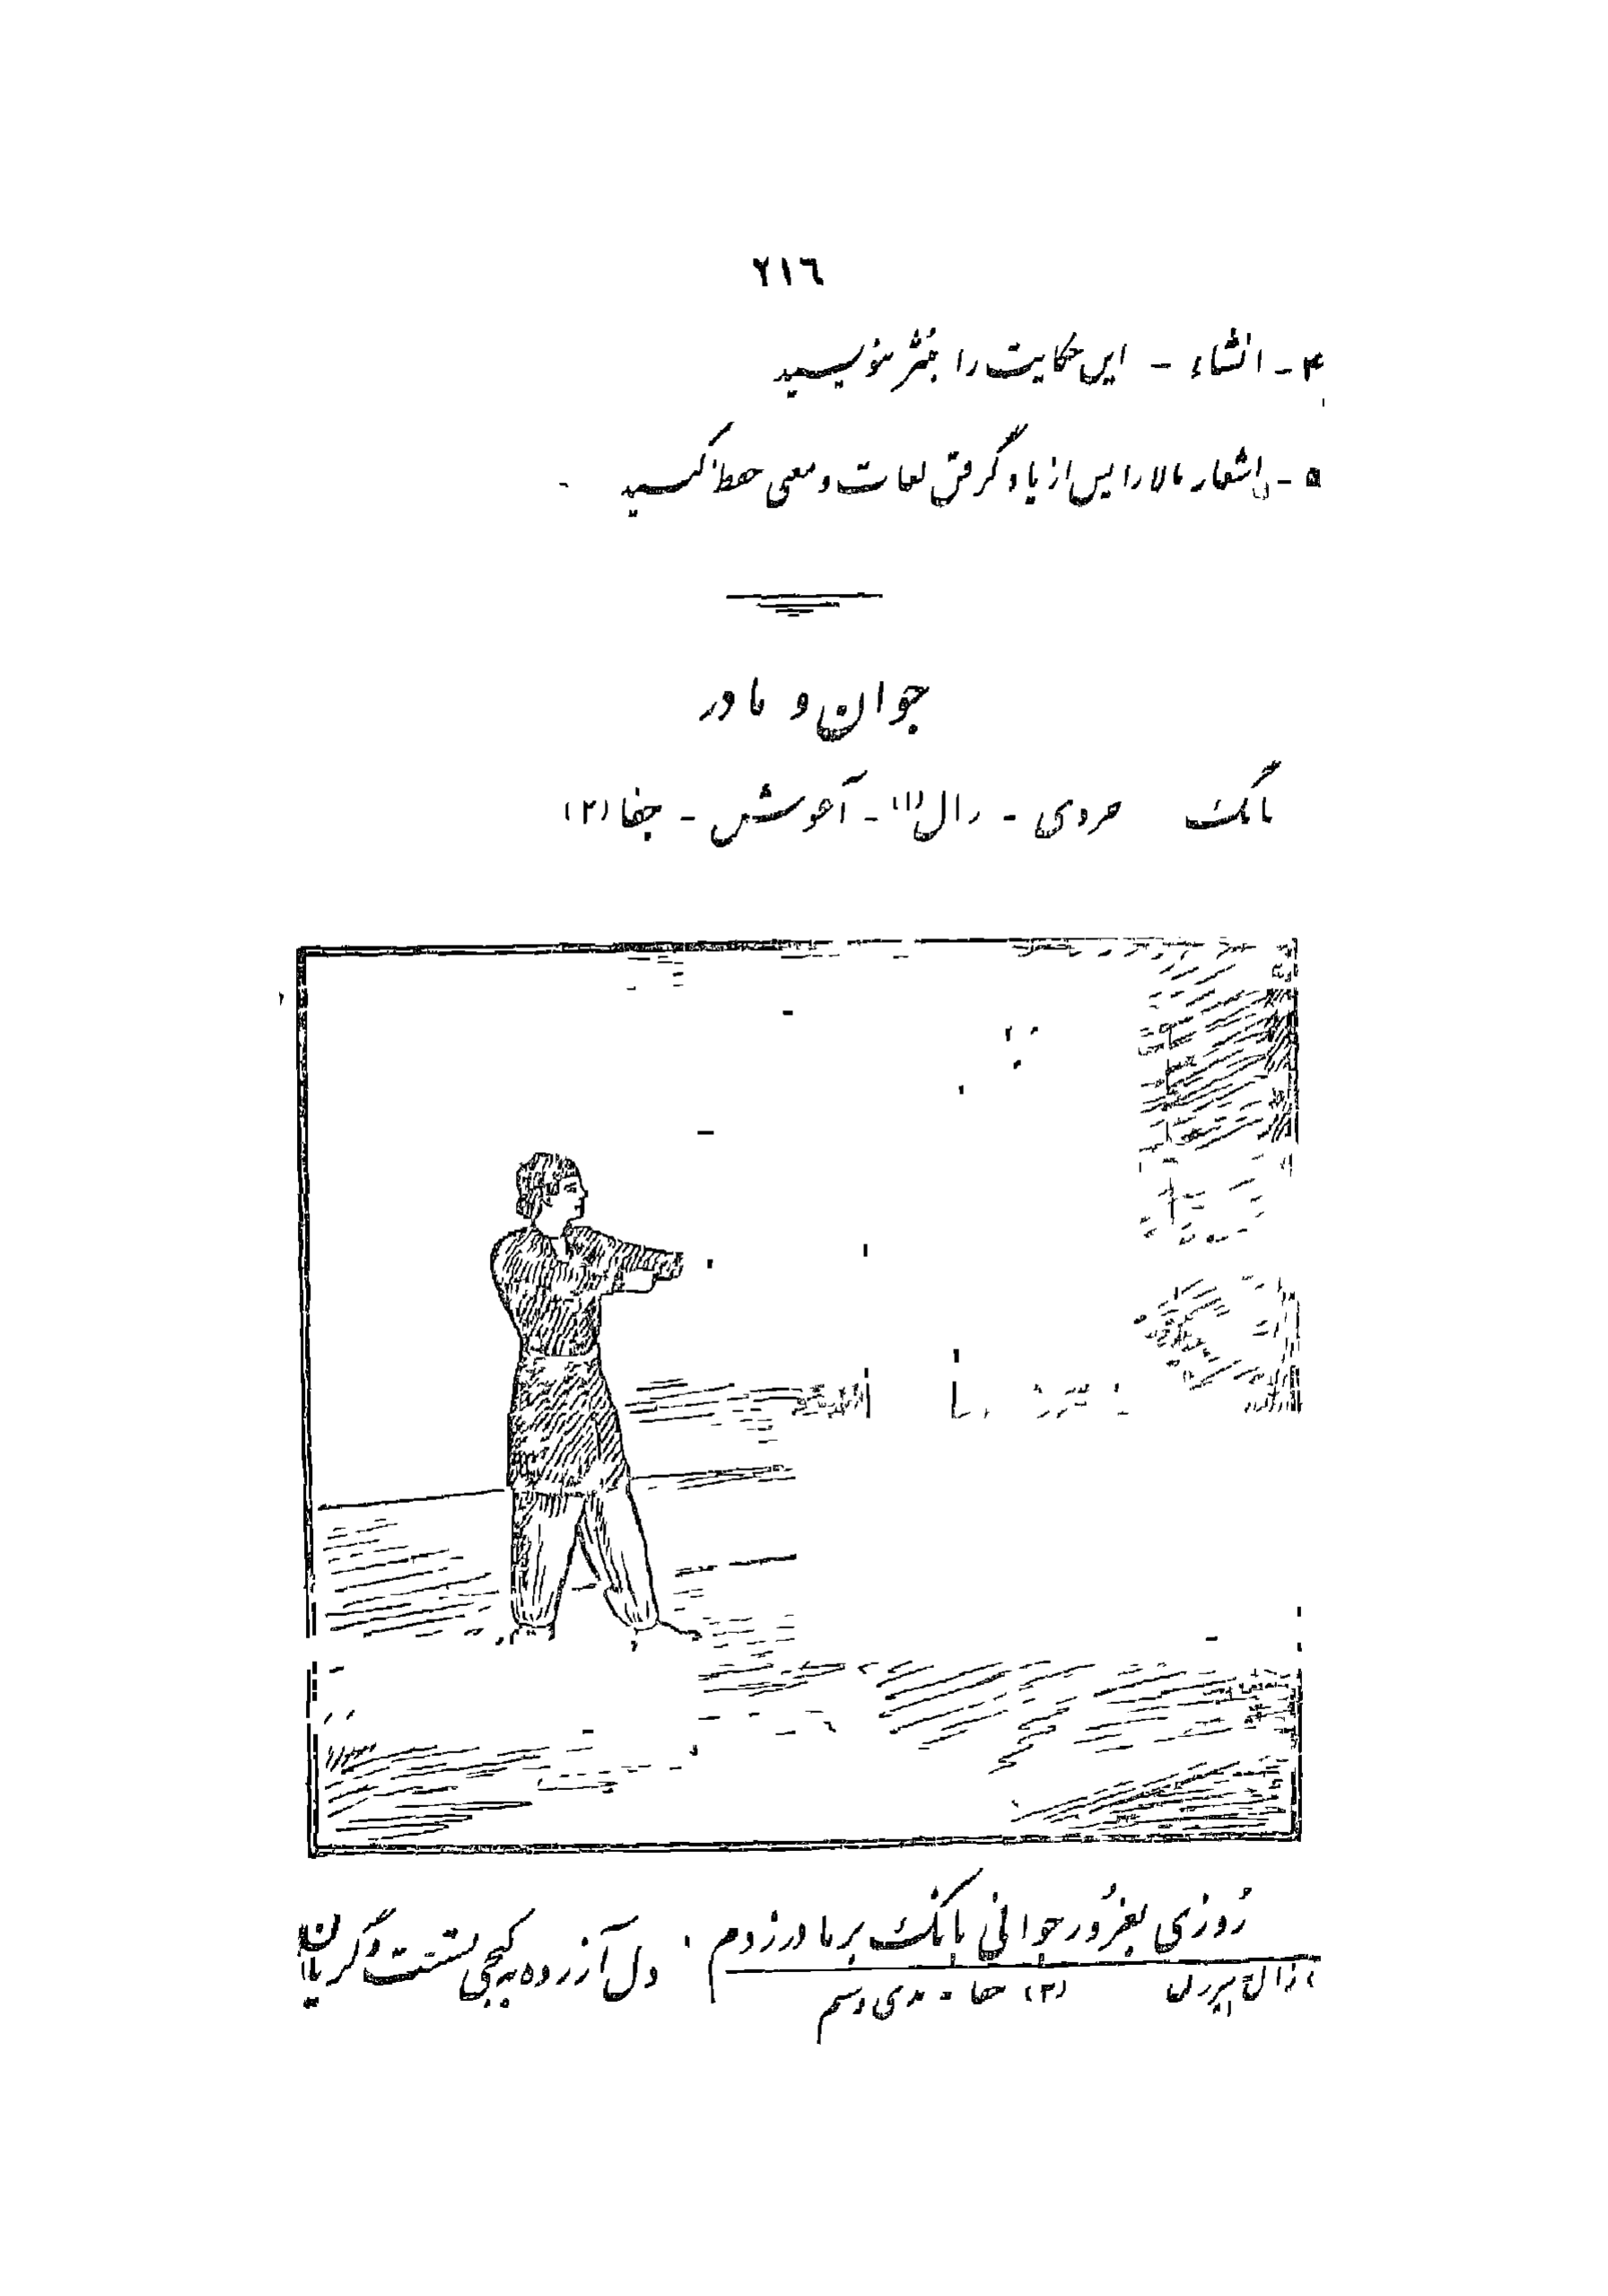 ٢١٦
۴ - انشاء - این حکایت را بنثر بنویسید
۵ - اشعار بالا را پس از یاد گرفتن لغات و معنی حفظ کنید
جوان و مادر
بانگ خردی - زال (۱) - آغوش - جفا (۲)
رُوزی بغرُور جوانی بانگ بر مادر زدم . دل آزرده به کنجی نشست و گریان
زال پیر زن (۲) جفا = بدی و ستم